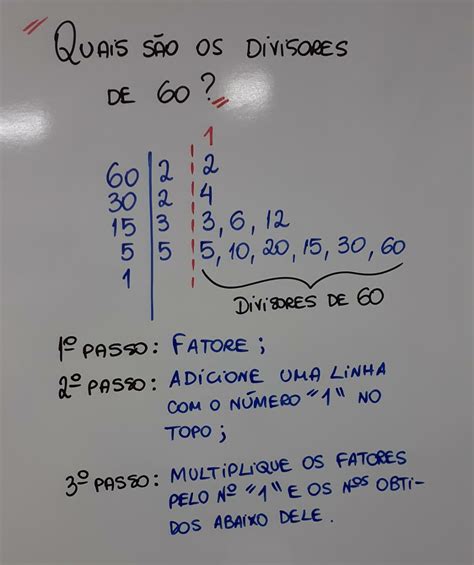 " QUAIS SÃO OS DIVISORES
DE 60? "
1
60 | 2 | 2
30 | 2 | 4
15 | 3 | 3, 6, 12
5 | 5 | 5, 10, 20, 15, 30, 60
1
DIVISORES DE 60
1º PASSO: FATORE;
2º PASSO: ADICIONE UMA LINHA
COM O NÚMERO "1" NO
TOPO;
3º PASSO: MULTIPLIQUE OS FATORES
PELO Nº "1" E OS Nºs OBTI-
DOS ABAIXO DELE.